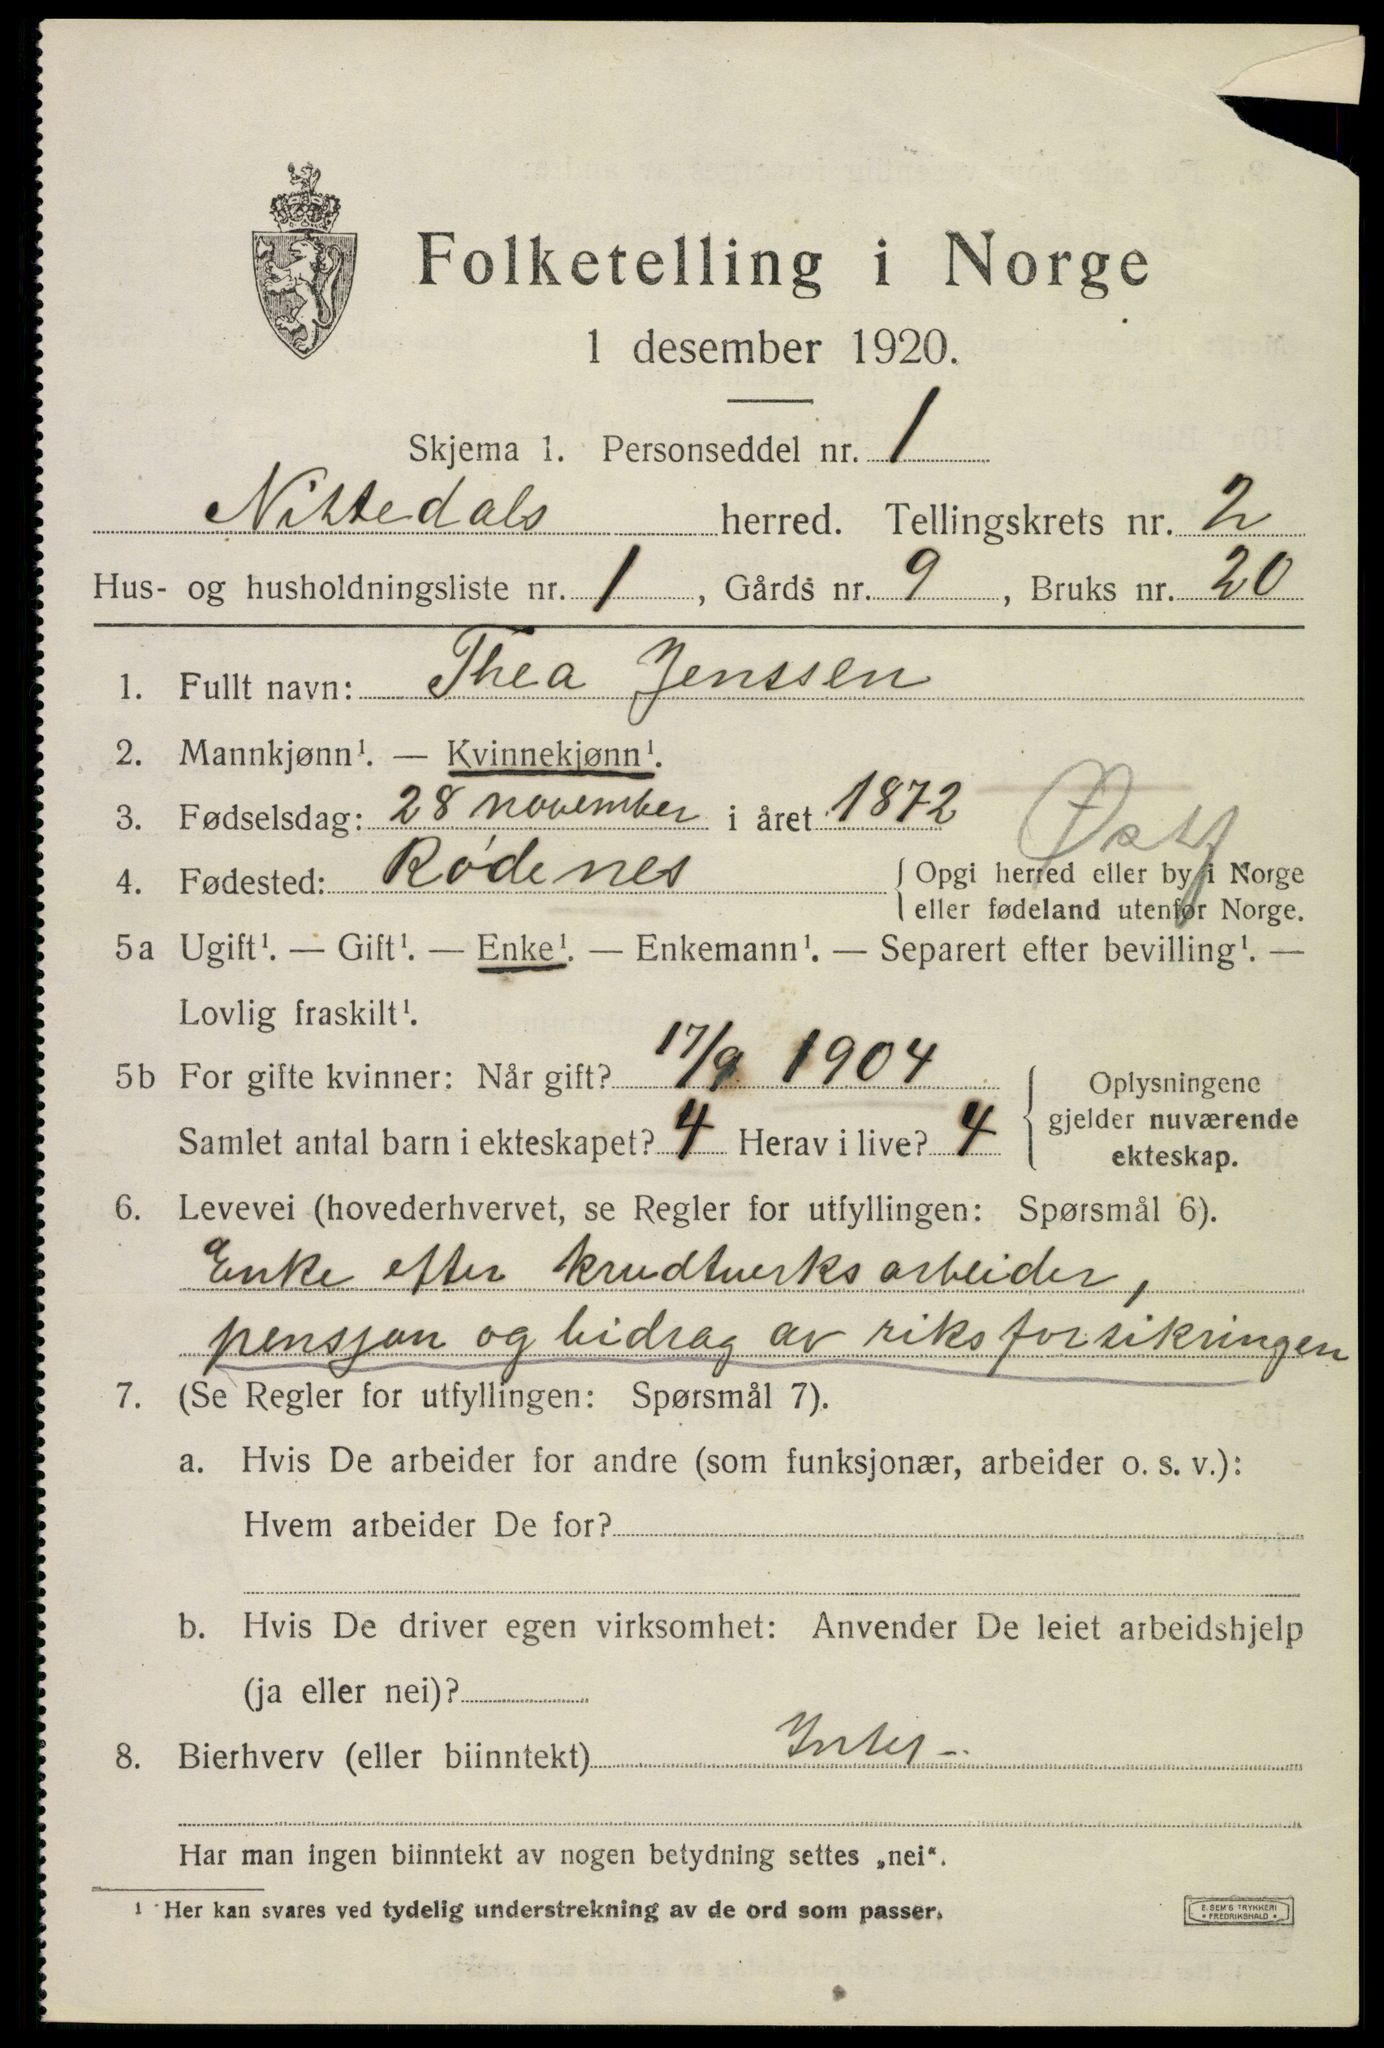 Folketelling i Norge
1 desember 1920.
Skjema 1. Personseddel nr. 1
Nittedals herred. Tellingskrets nr. 2
Hus- og husholdningsliste nr. 1, Gårds nr. 9, Bruks nr. 20
1. Fullt navn: Thea Jenssen
2. Mannkjønn¹. — Kvinnekjønn¹.
3. Fødselsdag: 28 november i året 1872
Østf
4. Fødested: Rødenes { Opgi herred eller by i Norge
eller fødeland utenfor Norge.
5a Ugift¹. — Gift¹. — Enke¹. — Enkemann¹. — Separert efter bevilling¹. —
Lovlig fraskilt¹.
5b For gifte kvinner: Når gift? 17/9 1904
Samlet antal barn i ekteskapet? 4 Herav i live? 4
{ Oplysningene
gjelder nuværende
ekteskap.
6. Levevei (hovederhvervet, se Regler for utfyllingen: Spørsmål 6).
Enke efter krudtverksarbeider,
pensjon og bidrag av riksforsikringen
7. (Se Regler for utfyllingen: Spørsmål 7).
a. Hvis De arbeider for andre (som funksjonær, arbeider o. s. v.):
Hvem arbeider De for?
b. Hvis De driver egen virksomhet: Anvender De leiet arbeidshjelp
(ja eller nei)?
8. Bierhverv (eller biinntekt) Intet
Har man ingen biinntekt av nogen betydning settes „nei“.
¹ Her kan svares ved tydelig understrekning av de ord som passer.
E. SEM'S TRYKKERI
* FREDRIKSHALD *